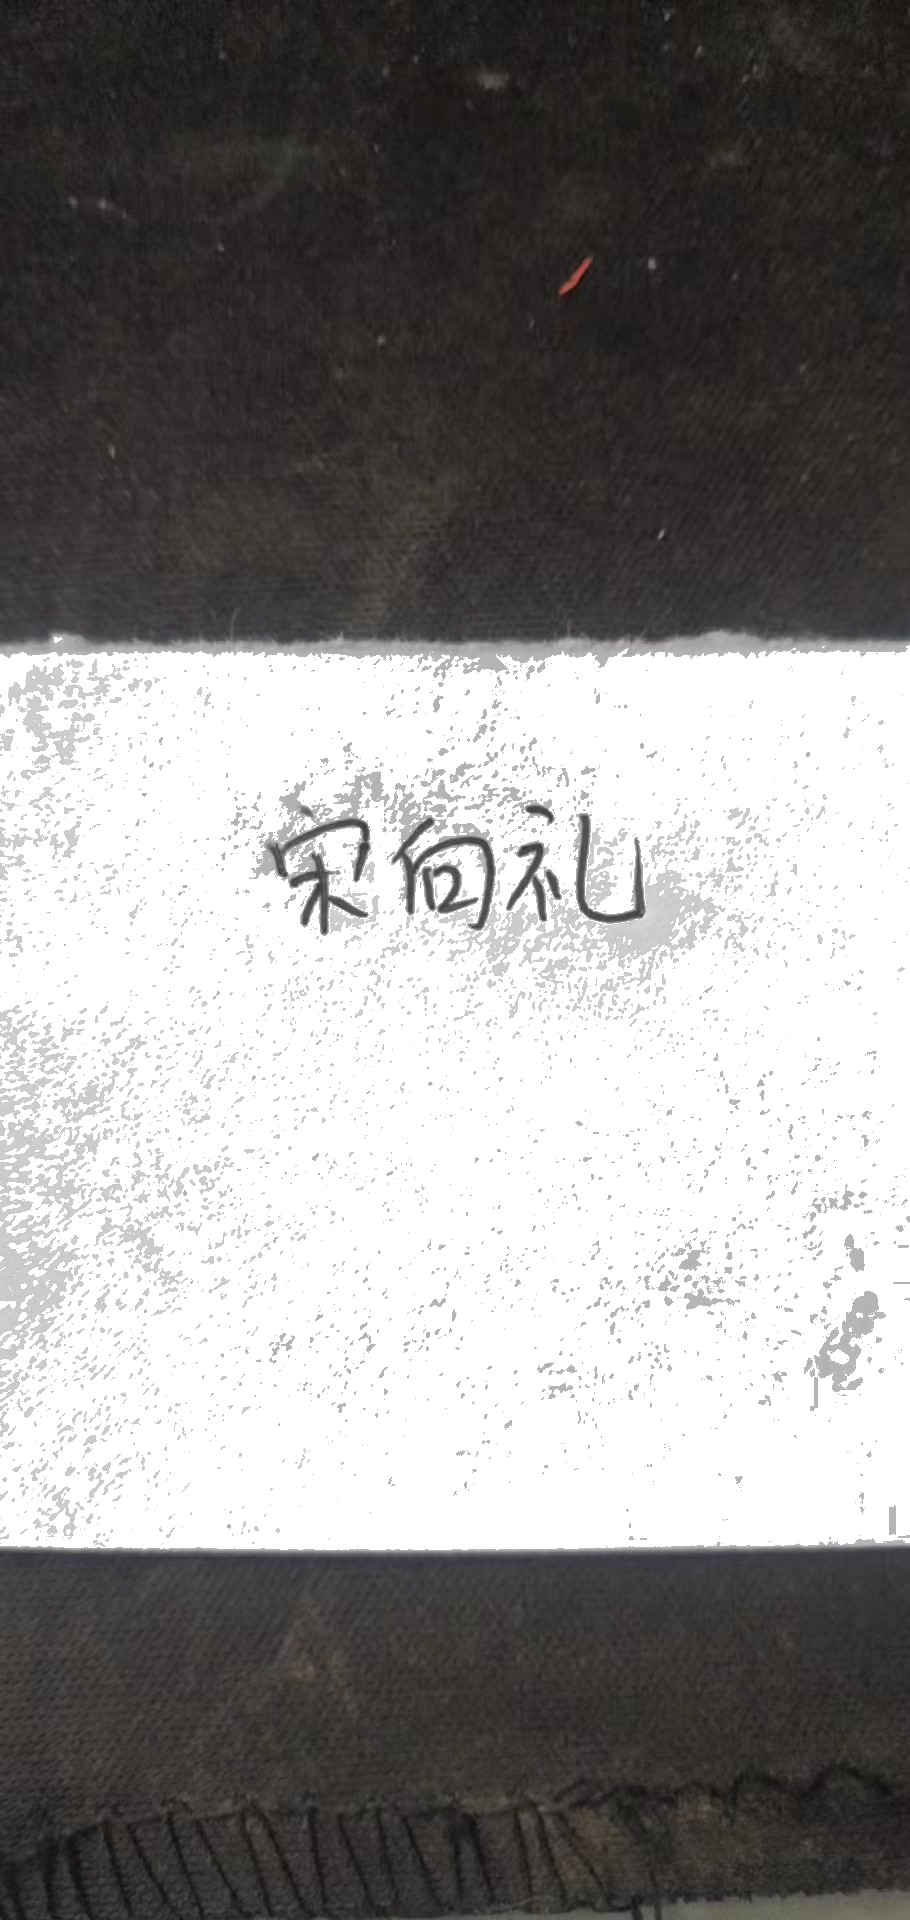 宋向礼